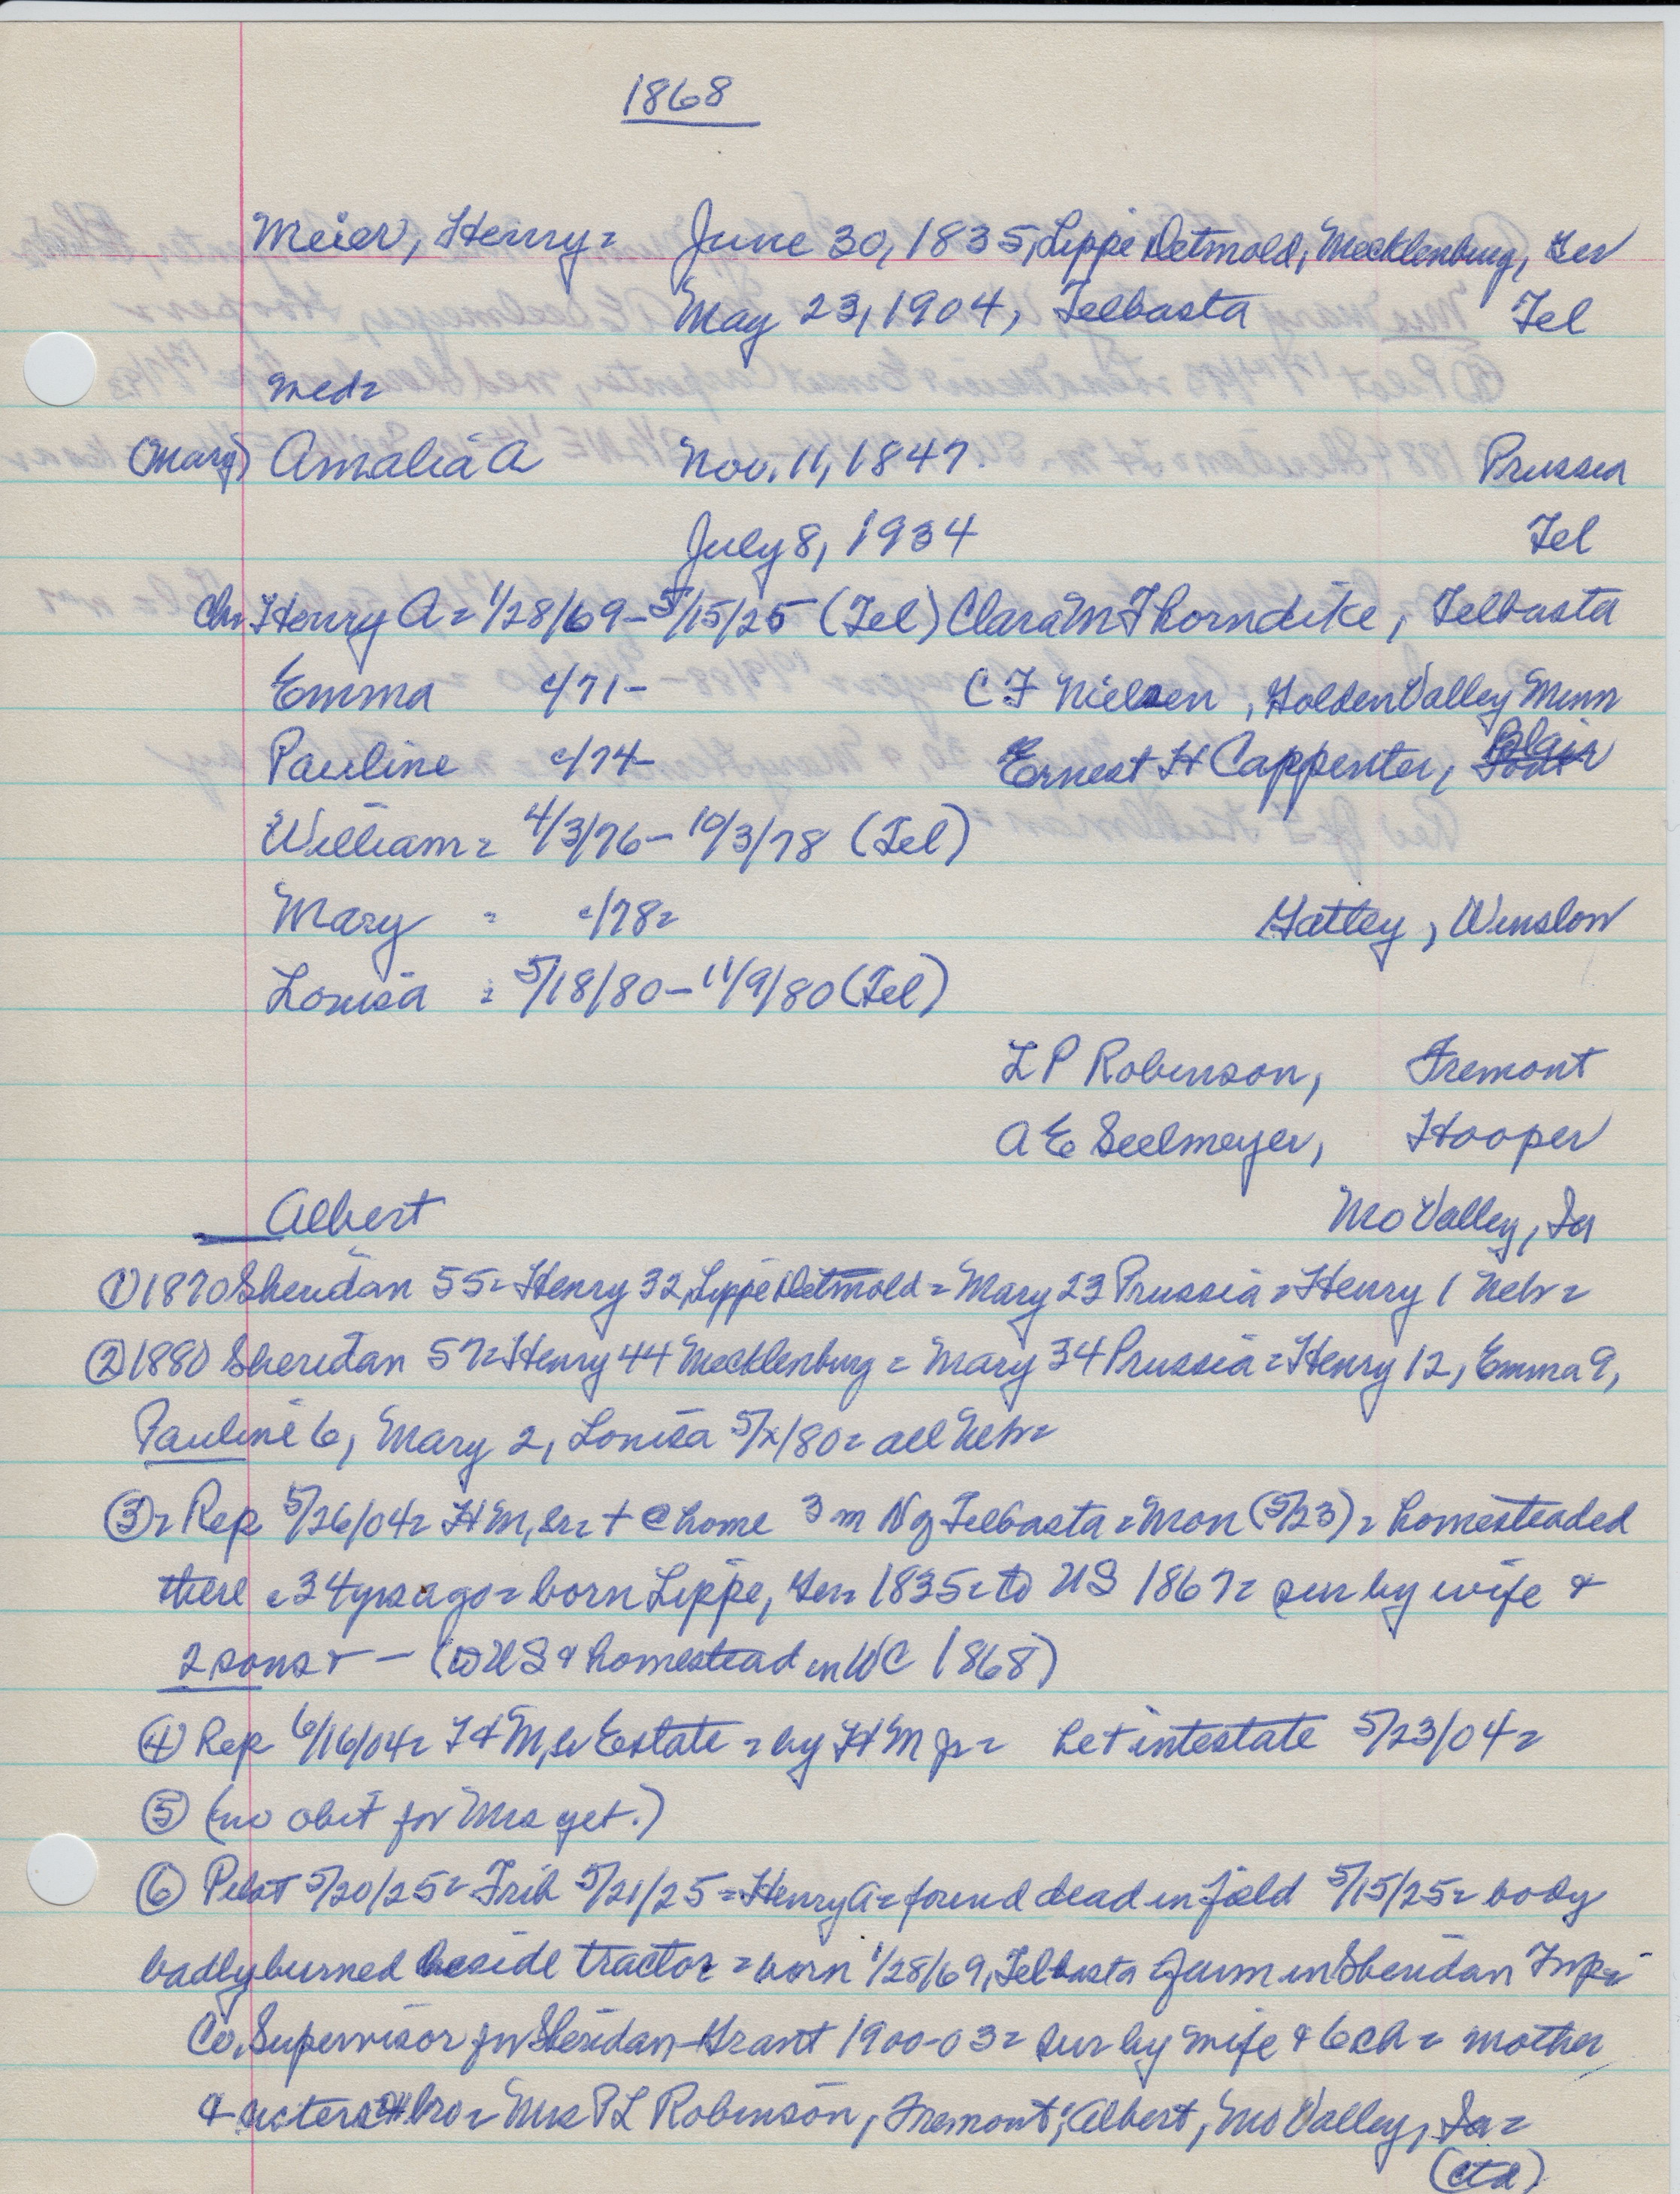 1868
Meier, Henry = June 30, 1835, Lippe Detmold, Mecklenburg, Ger
May 23, 1904, Telbasta Tel
med =
(Mary) Amalia A Nov. 11, 1847. Prussia
July 8, 1934 Tel
Ch = Henry A = 1/28/69 - 5/15/25 (Tel) Clara M Thorndike, Telbasta
Emma c/71 - C F Nielsen, Golden Valley Minn
Pauline c/74 - Ernest H Cappenter, Blair
William = 4/3/76 - 10/3/78 (Tel)
Mary = c/78 = Gattey, Winslow
Louisa = 5/18/80 - 11/9/80 (Tel)
L P Robinson, Fremont
A E Seelmeyer, Hooper
Albert Mo Valley, Ia
① 1870 Sheridan 55 = Henry 32, Lippe Detmold = Mary 23 Prussia = Henry 1 Neb =
② 1880 Sheridan 57 = Henry 44 Mecklenburg = Mary 34 Prussia = Henry 12, Emma 9,
Pauline 6, Mary 2, Louisa 5/x/80 = all Neb =
③ = Rep 5/26/04 = H M, sr = + @ home 3 m N of Telbasta = Mon (5/23) = homesteaded
there c 34 yrs ago = born Lippe, Ger = 1835 = to US 1867 = sur by wife &
2 sons + — (to US & homestead in WC 1868)
④ Rep 6/16/04 = H M, sr Estate = by H M jr = he + intestate 5/23/04 =
⑤ (no obit for Mrs yet.)
⑥ Pilot 5/20/25 = Trib 5/21/25 = Henry A = found dead in field 5/15/25 = body
badly burned beside tractor = born 1/28/69, Telbasta farm in Sheridan Twp =
Co. Supervisor for Sheridan-Grant 1900-03 = sur by wife & 6 ch = mother
& sisters & bro = Mrs P L Robinson, Fremont; Albert, Mo Valley, Ia =
(ctd)